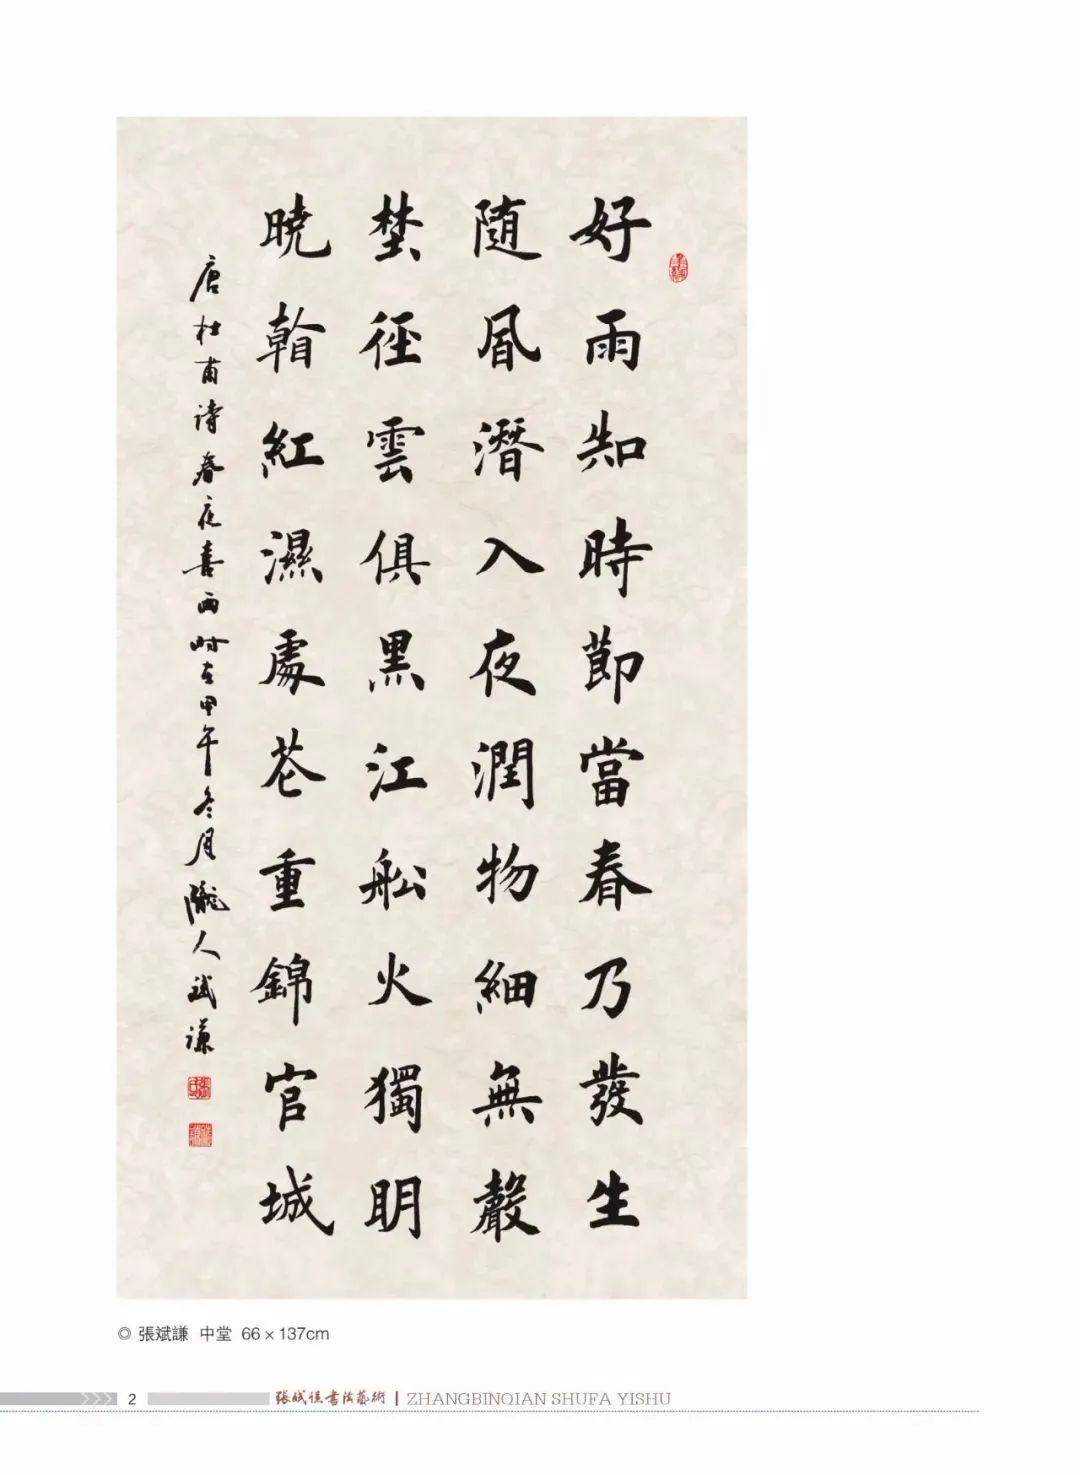 好雨知時節當春乃發生
隨風潛入夜潤物細無聲
埜徑雲俱黑江船火獨明
曉看紅濕處花重錦官城
唐杜甫诗春夜喜雨时在甲午冬月隴人斌谦
◎ 張斌謙 中堂 66×137cm
2
張斌謙書法藝術 | ZHANGBINQIAN SHUFA YISHU